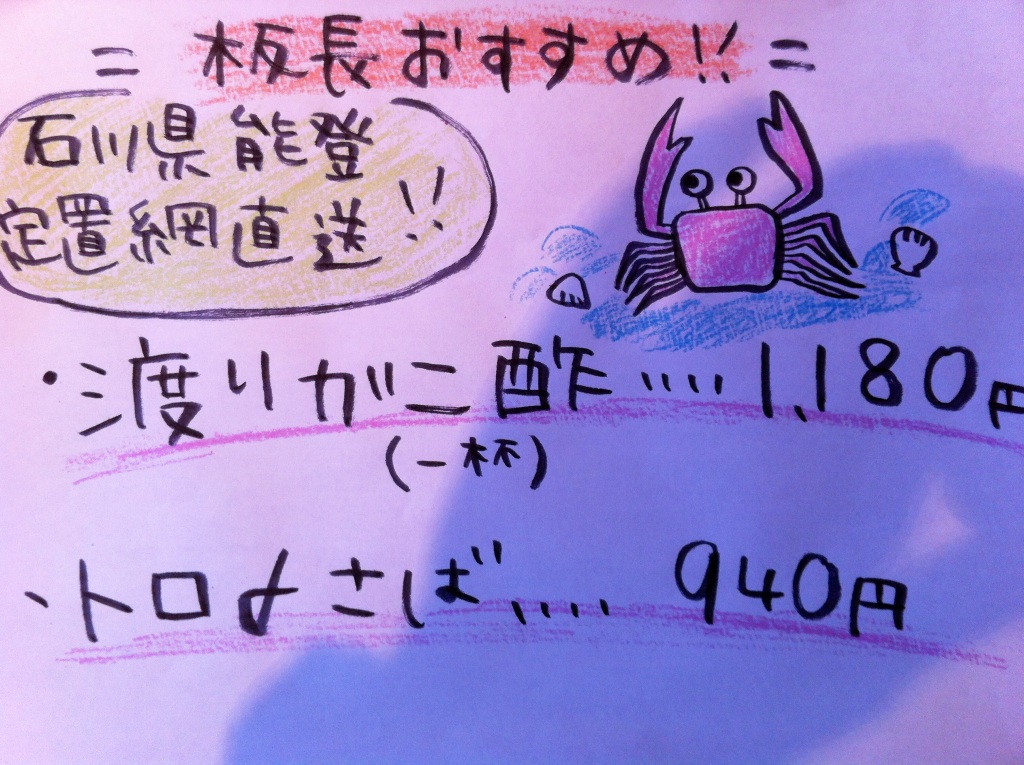 = 板長おすすめ!! =
石川県能登
定置網直送!!
・渡りがに酢‥‥1,180円
(一杯)
・トロ〆さば‥‥940円